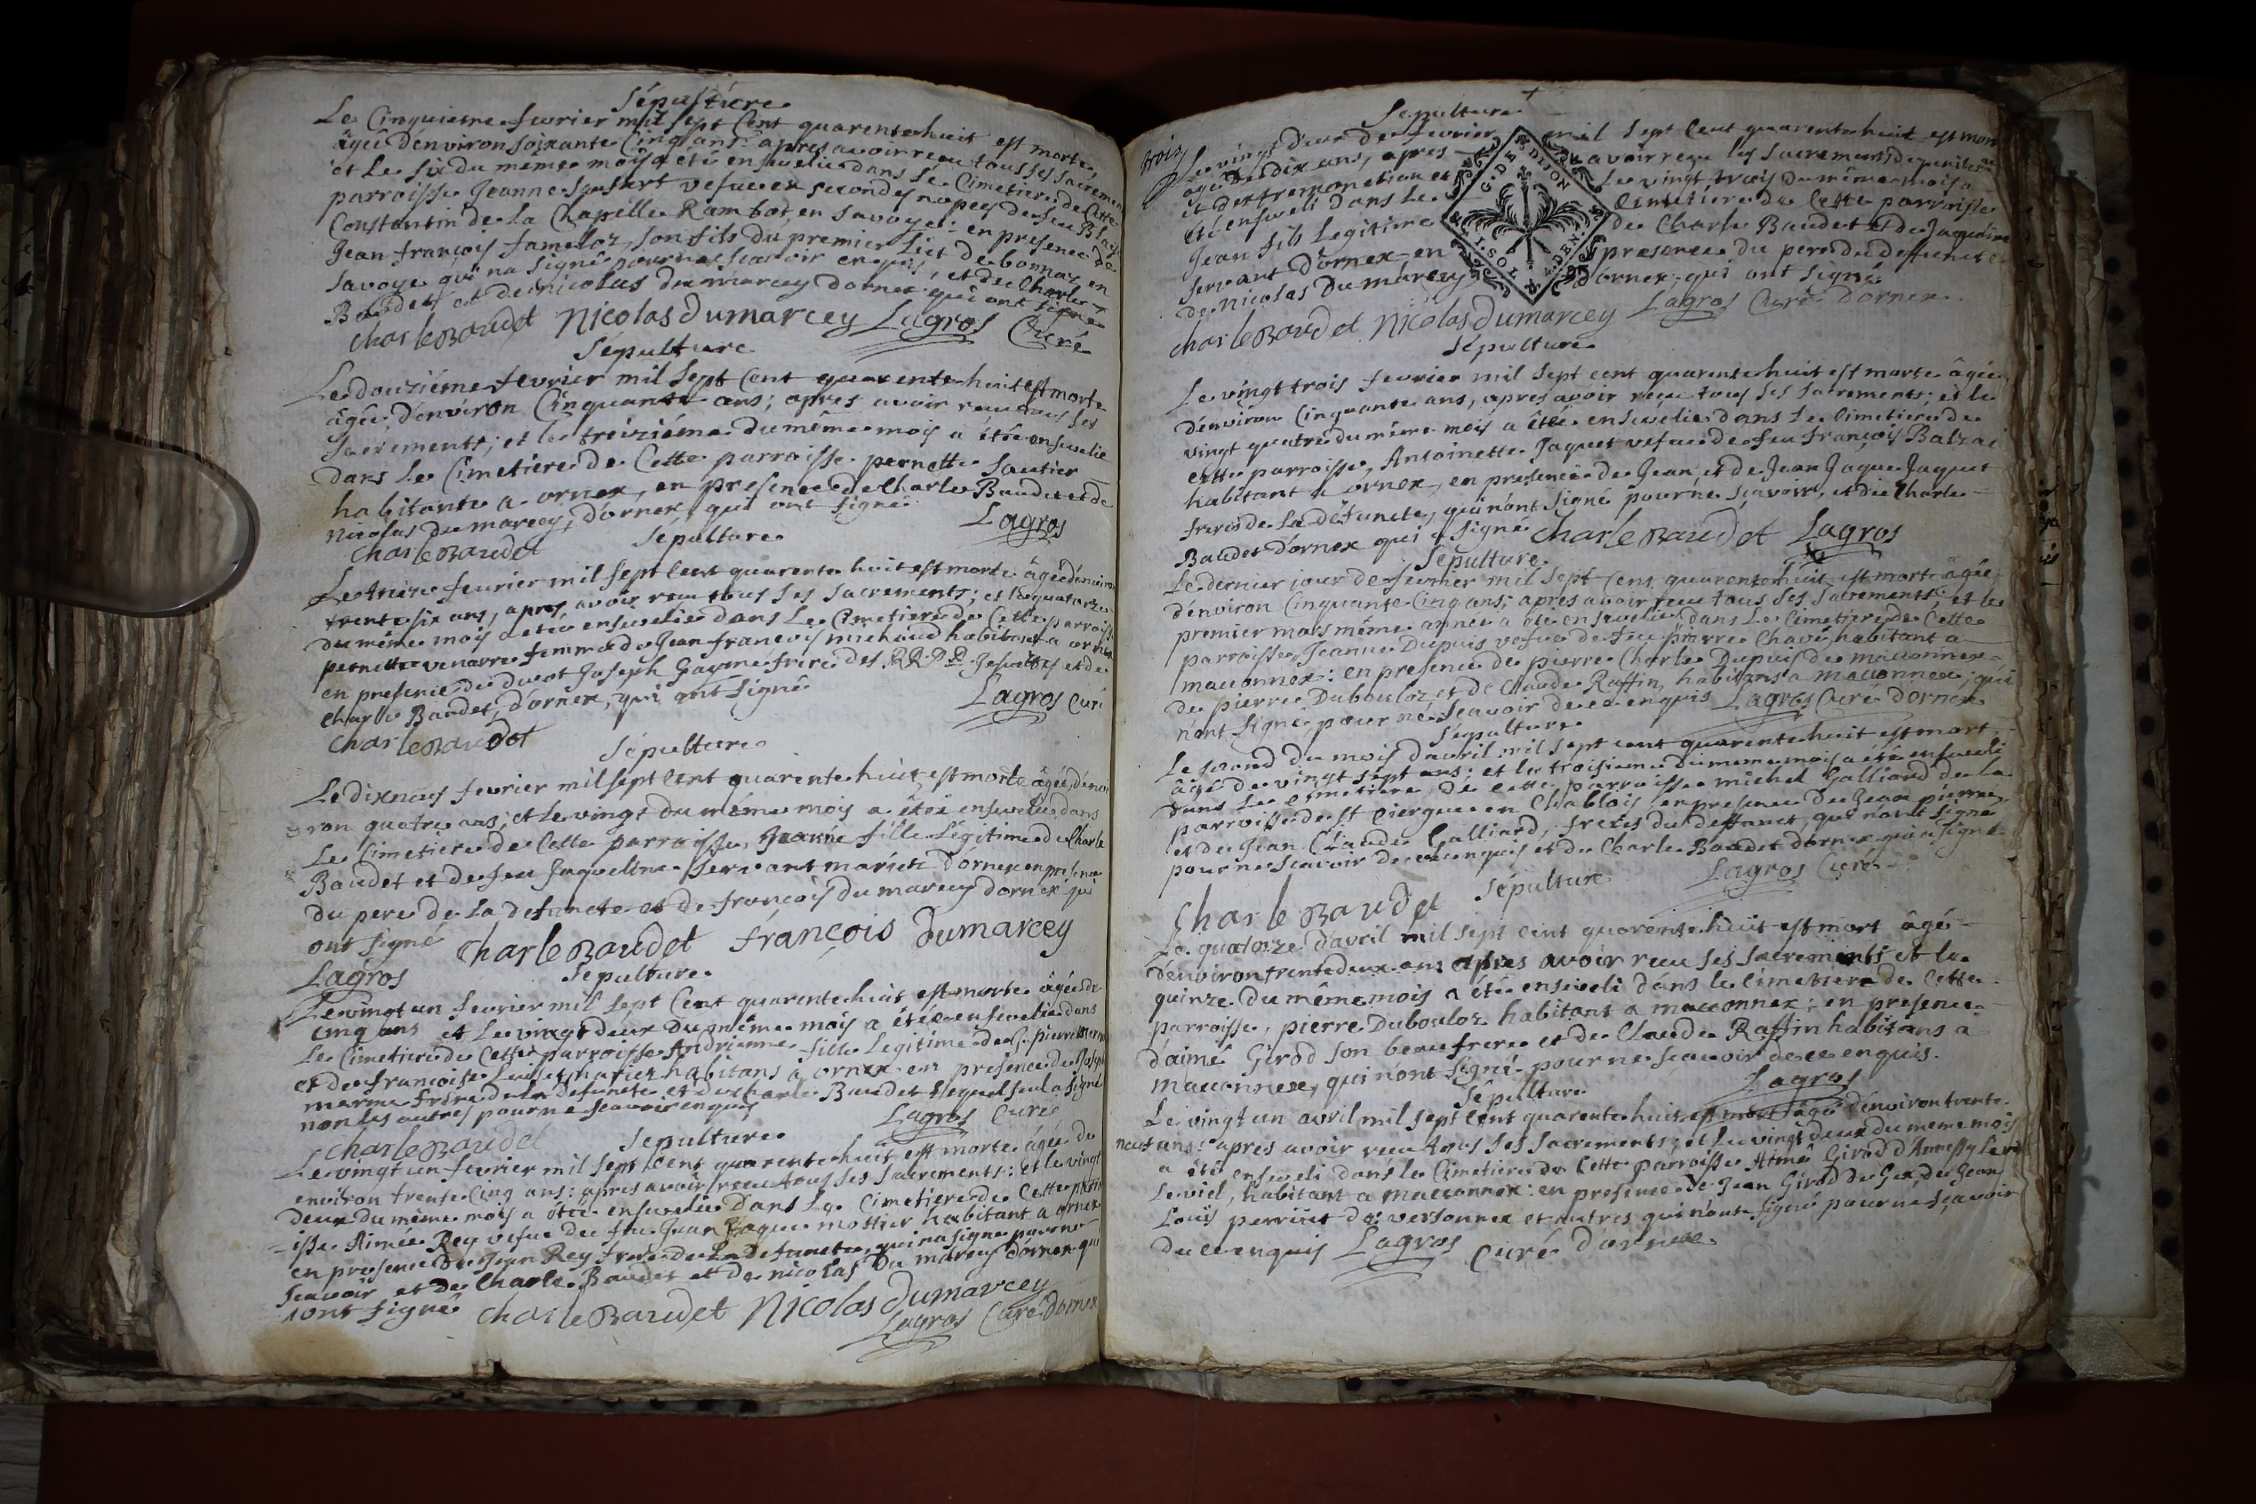 Sépulture
Le Cinquieme fevrier mil sept Cent quarente huit est morte,
âgée d'environ soixante Cinq ans: apres avoir receu tous ses sacremens
et le six du même mois a eté ensevelie dans le Cimetiere de Cette
parroisse Jeanne vefue en secondes nopces de feu Blaise
Constantin de la Chapelle Rambot, en Savoye: en presence de
Jean françois fameloz, son fils du premier lict de bonnay en
Savoye qui n'a signé pour ne sçavoir enquis, et de Charle
Baudet et de nicolas du marcey d'ornex qui ont signé
Charle Baudet Nicolas Dumarcey Lagros Curé
Sépulture
Le douziéme fevrier mil sept Cent quarente huit est morte
âgée d'environ Cinquante ans; apres avoir receu tous ses
Sacrements; et le treiziéme du même mois a étée ensevelie
dans le Cimetiere de Cette parroisse pernette Sautier
habitante a ornex, en presence de Charle Baudet et de
Nicolas du marcey, d'ornex, qui ont signé
Charle Baudet Lagros
Sépulture
Le treize fevrier mil sept Cent quarente huit est morte âgée d'environ
trente six ans, apres avoir receu tous ses sacrements; et le quatorze
du même mois a eté ensevelie dans le Cimetiere de Cette parroisse
pernette venarre femme de Jean françois michaud habitant a ornex
en presence de Joseph frere des RR.PP. Jesuittes et de
Charle Baudet, d'ornex, qui ont signé
Charle Baudet Lagros Curé
Sépulture
Le dixneuf fevrier mil sept Cent quarente huit est morte âgée d'envi
ron quatre ans; et le vingt du même mois a étéé ensevelie dans
Le Cimetiere de Cette parroisse, Jeanne fille légitime de Charle
Baudet et de feu Jaqueline Servant mariés d'ornex en presence
du pere de la defuncte et de françois du marcey d'ornex qui
ont signé Charle Baudet françois Dumarcey
Lagros
Sepulture
Le vingt un fevrier mil sept Cent quarente huit est morte âgée de
cinq ans et le vingt deux du même mois a étée ensevelie dans
Le Cimetiere de Cette parroisse Andrienne fille Legitime de pierre
et de françoise mariez habitans à ornex en presence de Joseph
frere de la defuncte et de Charle Baudet lequel seul a signé
non les autres pour ne sçavoir enquis
Charle Baudet Lagros Curé
Sepulture
Le vingt un fevrier mil sept Cent quarente huit est morte âgée de
environ trente Cinq ans: apres avoir receu tous ses sacrements: et le vingt
deux du même mois a étée ensevelie dans Le Cimetiere de Cette parro
isse Aimée Rey vefue de feu Jean Jaque mottier habitant a ornex
en presence de Jean Rey frere de la defuncte, qui n'a signé pour ne
sçavoir et de Charle Baudet et de nicolas Du marcey d'ornex qui
ont signé Charle Baudet Nicolas Dumarcey
Lagros Curé d'ornex
trois
Sepulture
Le vingt deux de fevrier mil sept Cent quarente huit est mort
âgé de dix ans, apres avoir receu les sacrements de penitence
et d'extremonction et Le vingt trois du même mois a
été enseveli dans le Cimetiere de Cette parroisse
Jean fils Legitime de Charle Baudet et de Jaqueline
Servant d'ornex en presence du pere du deffunct et
de nicolas Du marcey d'ornex, qui ont signé
G. DE DIJON
Charle Baudet Nicolas Dumarcey Lagros Curé d'ornex
Sépulture
Le vingt trois fevrier mil sept cent quarente huit est morte âgée
d'environ Cinquante ans, apres avoir receu tous ses sacrements; et le
vingt quatre du même mois a étée ensevelie dans le Cimetiere de
cette parroisse, Antoinette Jaquet vefue de feu françois Balzai
habitant a ornex, en presence de Jean, et de Jean Jaque Jaquet
freres de la défuncte, qui n'ont signé pour ne sçavoir, et de Charle
Baudet d'ornex qui a signé Charle Baudet Lagros
Sépulture
Le dernier jour de fevrier mil sept Cent quarente huit est morte âgée
d'environ Cinquante Cinq ans; apres avoir receu tous ses sacrements; et le
premier mars même année a été ensevelie dans Le Cimetiere de Cette
parroisse, Jeanne Dupuis vefue de feu pierre Chavé habitant a
mauconnex: en presence de pierre Charle Dupuis de mauconnex
de pierre Dubouloz et de Claude Raffin, habitans a mauconnex, qui
n'ont signé pour ne sçavoir de ce enquis Lagros Curé d'ornex
Sépulture
Le second du mois d'avril mil sept cent quarente huit est mort
âgé de vingt sept ans; et le troisieme du meme mois a été enseveli
dans Le cimetiere, de cette parroisse michel Galliard de la
parroisse de st Ciergue en Chablais en presence de Jean pierre,
et de Jean Claude Galliard, freres du deffunct, qui n'ont signé
pour ne sçavoir de ce enquis et de Charle Baudet d'ornex qui a signé
Charle Baudet Lagros Curé
Sépulture
Le quatorze d'avril mil sept cent quarente huit est mort âgé
d'environ trente deux ans apres avoir receu ses sacrements et le
quinze du même mois a été enseveli dans le cimetiere de Cette
parroisse, pierre Dubouloz habitant a mauconnex: en presence
d'aimé Girod son beau frere et de Claude Raffin habitans a
mauconnex, qui n'ont signé pour ne sçavoir de ce enquis.
Lagros
Sépulture
Le vingt un avril mil sept Cent quarente huit est mort âgé d'environ trente
neuf ans: apres avoir receu tous ses sacrements; et le vingt deux du meme mois
a été enseveli dans le Cimetiere de Cette parroisse Aimé Girod d'Annessy
Le viel, habitant a mauconnex: en presence de Jean Girod de Gex, de Jean
Louis perriut de versonnex et autres qui n'ont signé pour ne sçavoir
de ce enquis Lagros Curé d'ornex